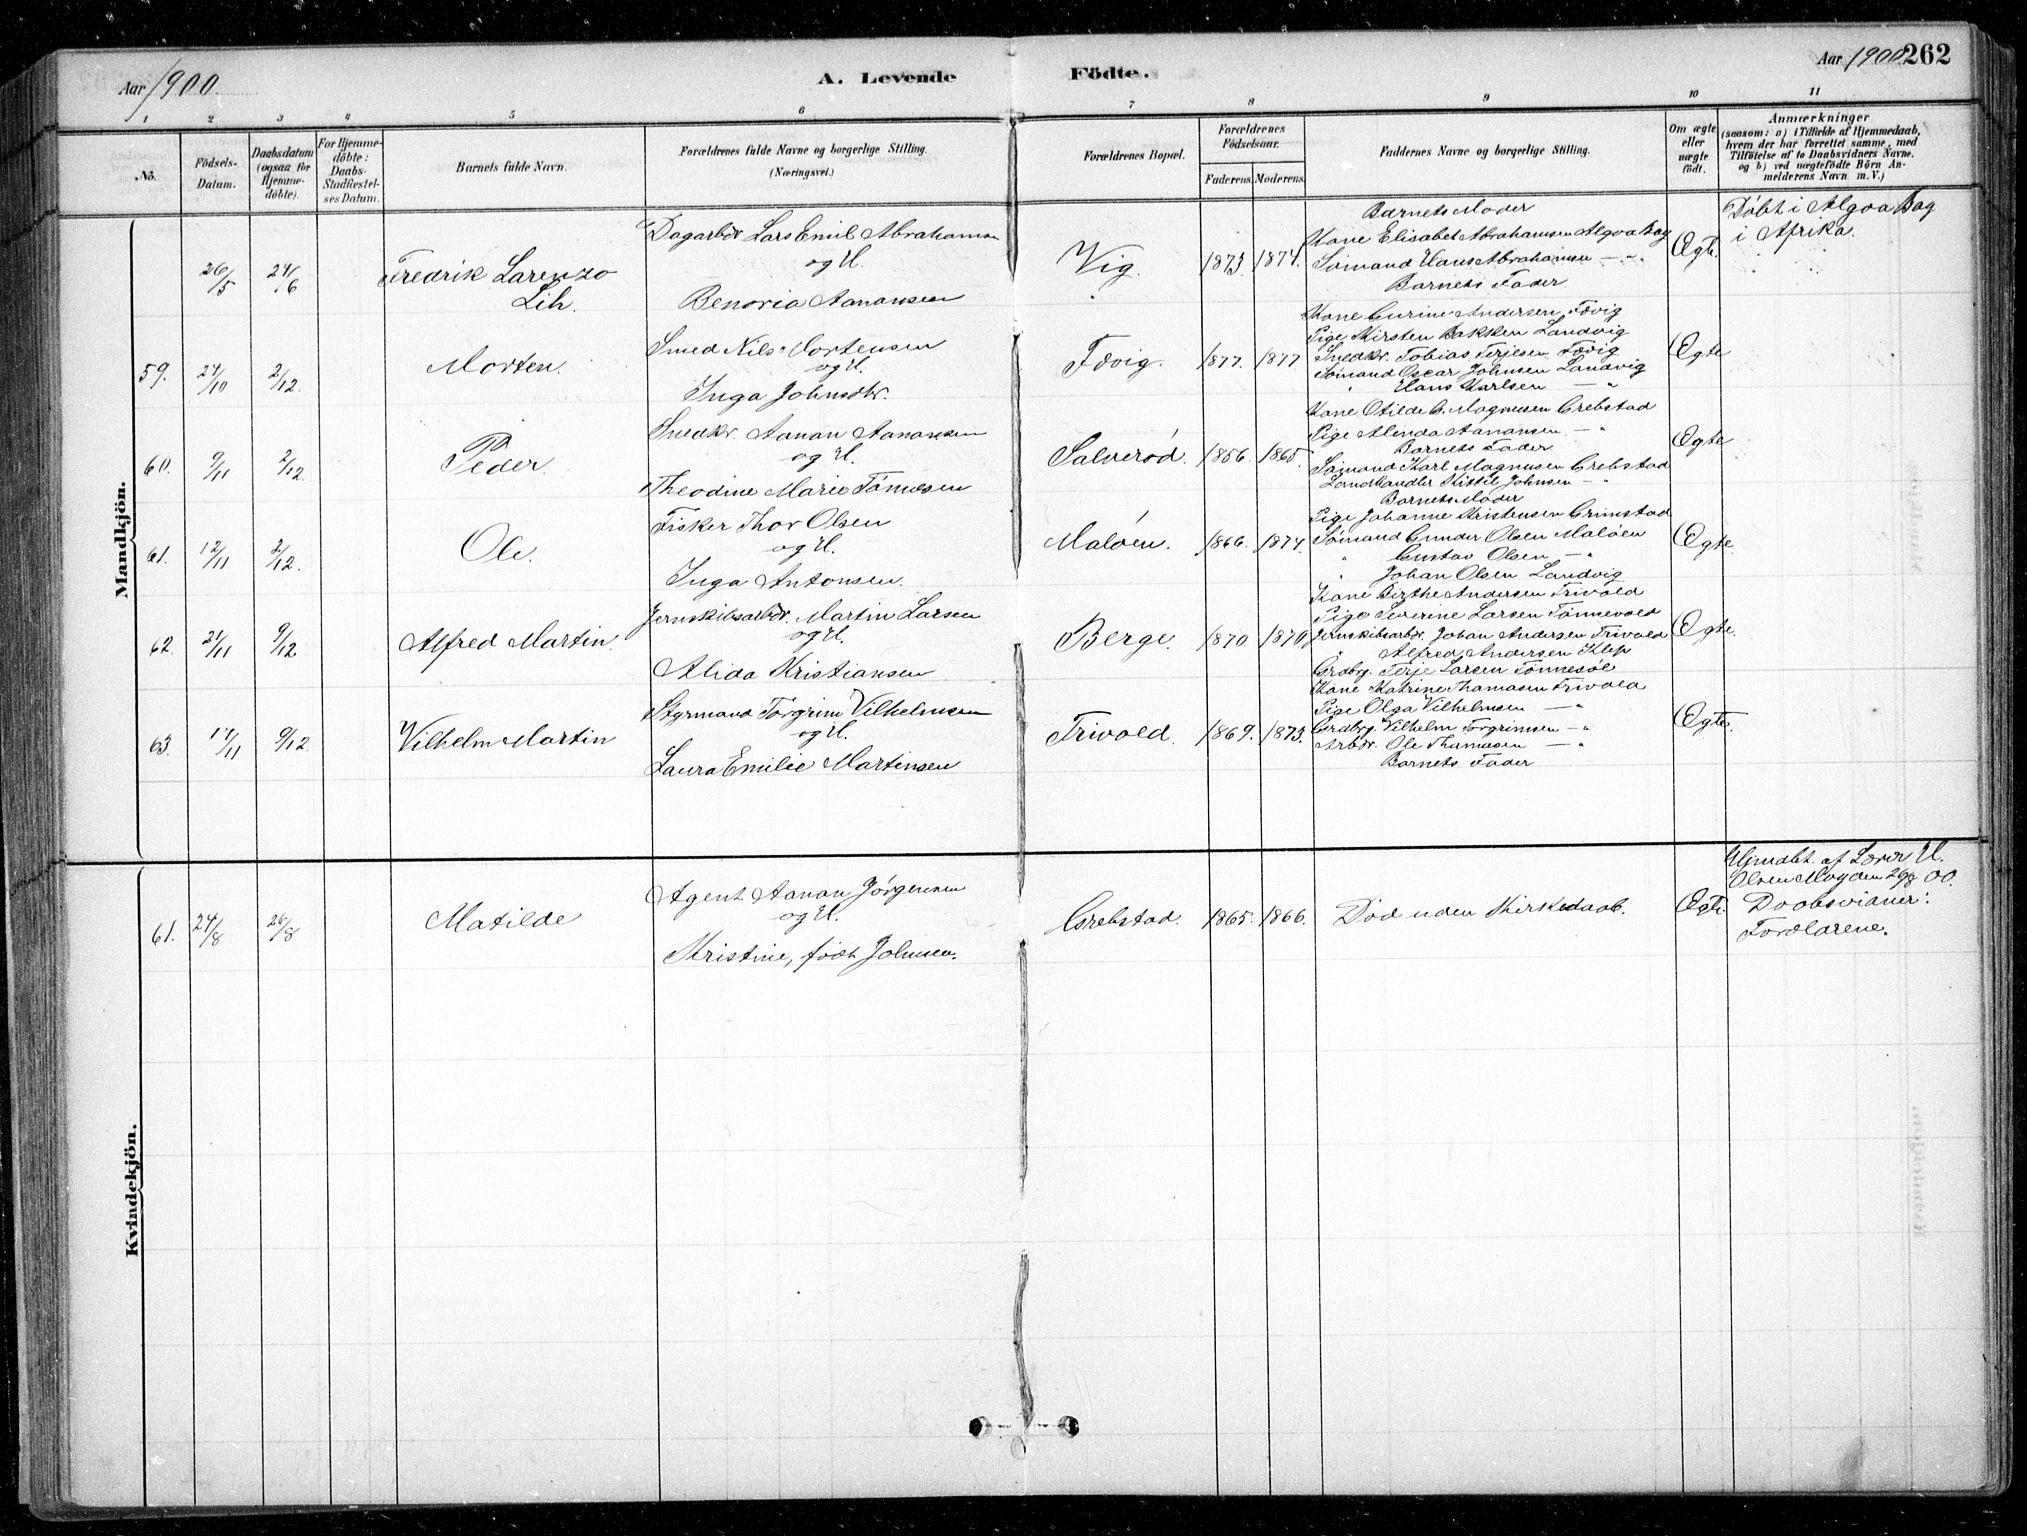 Aar 1900.
A. Levende
Födte.
Aar 1900
262
1 2 3 4 5 6 7 8 9 10 11
No.
Födsels-
Datum.
Daabsdatum
(ogsaa for
Hjemme-
döbte).
For Hjemme-
döbte:
Daabs-
Stadfæstel-
ses Datum.
Barnets fulde Navn.
Forældrenes fulde Navne og borgerlige Stilling.
(Næringsvei.)
Forældrenes Bopæl.
Forældrenes
Födselsaar.
Faderens. Moderens.
Faddernes Navne og borgerlige Stilling.
Om ægte
eller
uægte
födt.
Anmærkninger
(saasom: a) i Tilfælde af Hjemmedaab,
hvem der har forrettet samme, med
Tilföielse af to Daabsvidners Navne.
og b) ved uægtefödte Börn An-
melderens Navn m. V.)
Mandkjön.
26/5 24/6
Fredrik Larenzo
Lih.
Dagarbdr Lars Emil Abrahamsen
og H.
Benoria Aanansen
Vig. 1873. 1874.
Barnets Moder
Kone Elisabet Abrahamsen Algoa Bay
Sømand Hans Abrahamsen — „
Barnets Fader
Ægte.
Døbt i Algoa Bay
i Afrika.
59. 24/10 2/12. Morten.
Smed Nils Mortensen
og H.
Inga Johnsdtr.
Fævig. 1877. 1877
Kone Gurine Andersen Fævig
Pige Kirsten Bakken Landvig
Snedkr. Tobias Terjesen Fævig
Sømand Oscar Johnsen Landvig
„ Hans Karlsen — „
Ægte
60. 9/11 2/12. Peder.
Snedkr. Aanan Aanansen
og H.
Theodine Marie Tømæsen
Salverød. 1856. 1865.
Kone Otilde C. Magnusen Grebstad
Pige Alinda Aanansen — „
Barnets Fader
Sømand Karl Magnusen Grebstad
Landhandler Kittil Johnsen — „
Ægte
61. 12/11 2/12. Ole.
Fisker Thor Olsen
og H.
Inga Antonsen.
Maløen. 1866. 1874.
Barnets Moder
Pige Johanne Kristensen Grimstad
Sømand Gunder Olsen Maløen
„ Gustav Olsen — „
„ Johan Olsen Landvig
Ægte.
62. 21/11 9/12 Alfred Martin.
Jernskibsarbdr. Martin Larsen
og H.
Alida Kristiansen
Berge. 1870. 1870
Kone Birthe Andersen Trivold
Pige Severine Larsen Tønnevold
Jernskibsarbdr. Johan Andersen Trivold
„ Alfred Andersen Klep
Grdbrg. Terje Larsen Tønnesøl
Ægte.
63. 17/11 9/12. Vilhelm Martin
Styrmand Torgrim Vilhelmsen
og H.
Laura Emilie Martinsen
Trivold. 1869. 1873.
Kone Katrine Thomasen Trivold
Pige Olga Vilhelmsen — „
Grdbrg. Vilhelm Torgrimsen — „
Arbdr. Ole Thomesen — „
Barnets Fader
Ægte.
Kvindekjön.
61. 24/8 26/8 Matilde
Agent Aanan Jørgensen
og H.
Kristine, født Johnsen.
Grebstad. 1865. 1866.
Død uden Kirkedaab.
Ægte.
Hjmdøbt. af Lærer H.
Olsen Moy den 26/8 00.
Daabsvidner:
Forældrene.